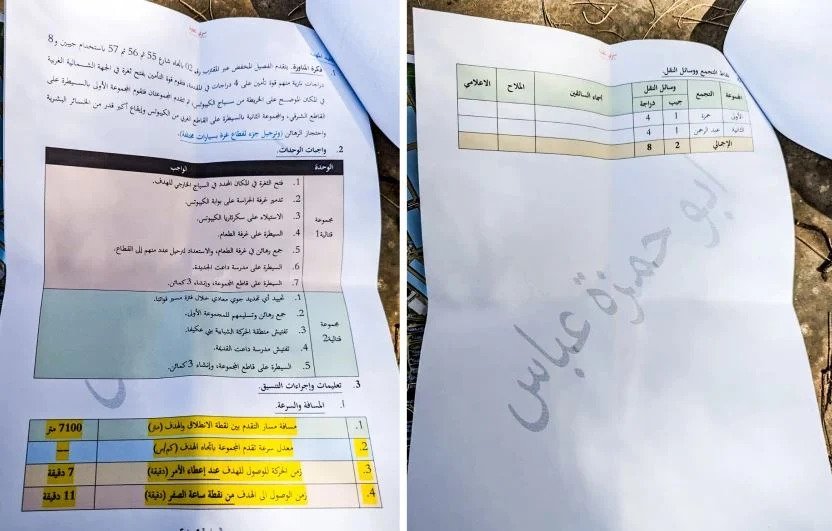 1. فكرة المناورة. يتقدم الفصيل المخفض عبر المقترب رقم 02 باتجاه شارع 55 ثم 56 ثم 57 باستخدام جيبين و8
دراجات نارية منهم قوة تأمين على 4 دراجات في المقدمة، فتقوم قوة التأمين بفتح ثغرة في الجهة الشمالية الغربية
في المكان الموضح على الخريطة من سياج الكيبوتس، ثم تتقدم المجموعتان فتقوم المجموعة الأولى بالسيطرة على
القاطع الشرقي، والمجموعة الثانية بالسيطرة على القاطع الغربي من الكيبوتس وإيقاع أكبر قدر من الخسائر البشرية
واحتجاز الرهائن (وترحيل جزء لقطاع غزة بسيارات مختلفة).
2. واجبات الوحدات.
الوحدة الواجب
مجموعة قتالية1
1. فتح الثغرة في المكان المحدد في السياج الخارجي للهدف.
2. تدمير غرفة الحراسة على بوابة الكيبوتس.
3. الاستيلاء على سكرتاريا الكيبوتس.
4. السيطرة على غرفة الطعام.
5. جمع رهائن في غرفة الطعام، والاستعداد لترحيل عدد منهم إلى القطاع.
6. السيطرة على مدرسة داعت الجديدة.
7. السيطرة على قاطع المجموعة، وإنشاء 3 كمائن.
مجموعة قتالية2
1. تحييد أي تهديد جوي معادي خلال فترة مسير قواتنا.
2. جمع رهائن وتسليمهم للمجموعة الأولى.
3. تفتيش منطقة الحركة الشبابية بني عكيفا.
4. تفتيش مدرسة داعت القديمة.
5. السيطرة على قاطع المجموعة، وإنشاء 3 كمائن.
3. تعليمات وإجراءات التنسيق.
أ. المسافة والسرعة.
1. مسافة مسار التقدم بين نقطة الانطلاق والهدف (متر) 7100 متر
2. معدل سرعة تقدم المجموعة باتجاه الهدف (كم/س) ---
3. زمن الحركة للوصول للهدف عند إعطاء الأمر (دقيقة) 7 دقيقة
4. زمن الوصول الى الهدف من نقطة ساعة الصفر (دقيقة) 11 دقيقة
نقاط التجمع ووسائل النقل.
المجموعة التجمع وسائل النقل أسماء السائقين الملاح الاعلامي
جيب دراجة
الأولى حمزة 1 4
الثانية عبد الرحمن 1 4
الإجمالي 2 8
ابو حمزة عباس